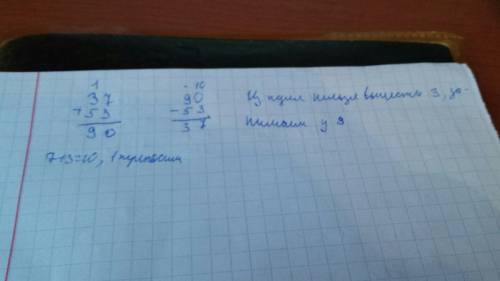 1
37
+ 53
90
7+3=10, 1 переносим
· 10
90
- 53
37
Из нуля нельзя вычесть 3, за-
нимаем у 9